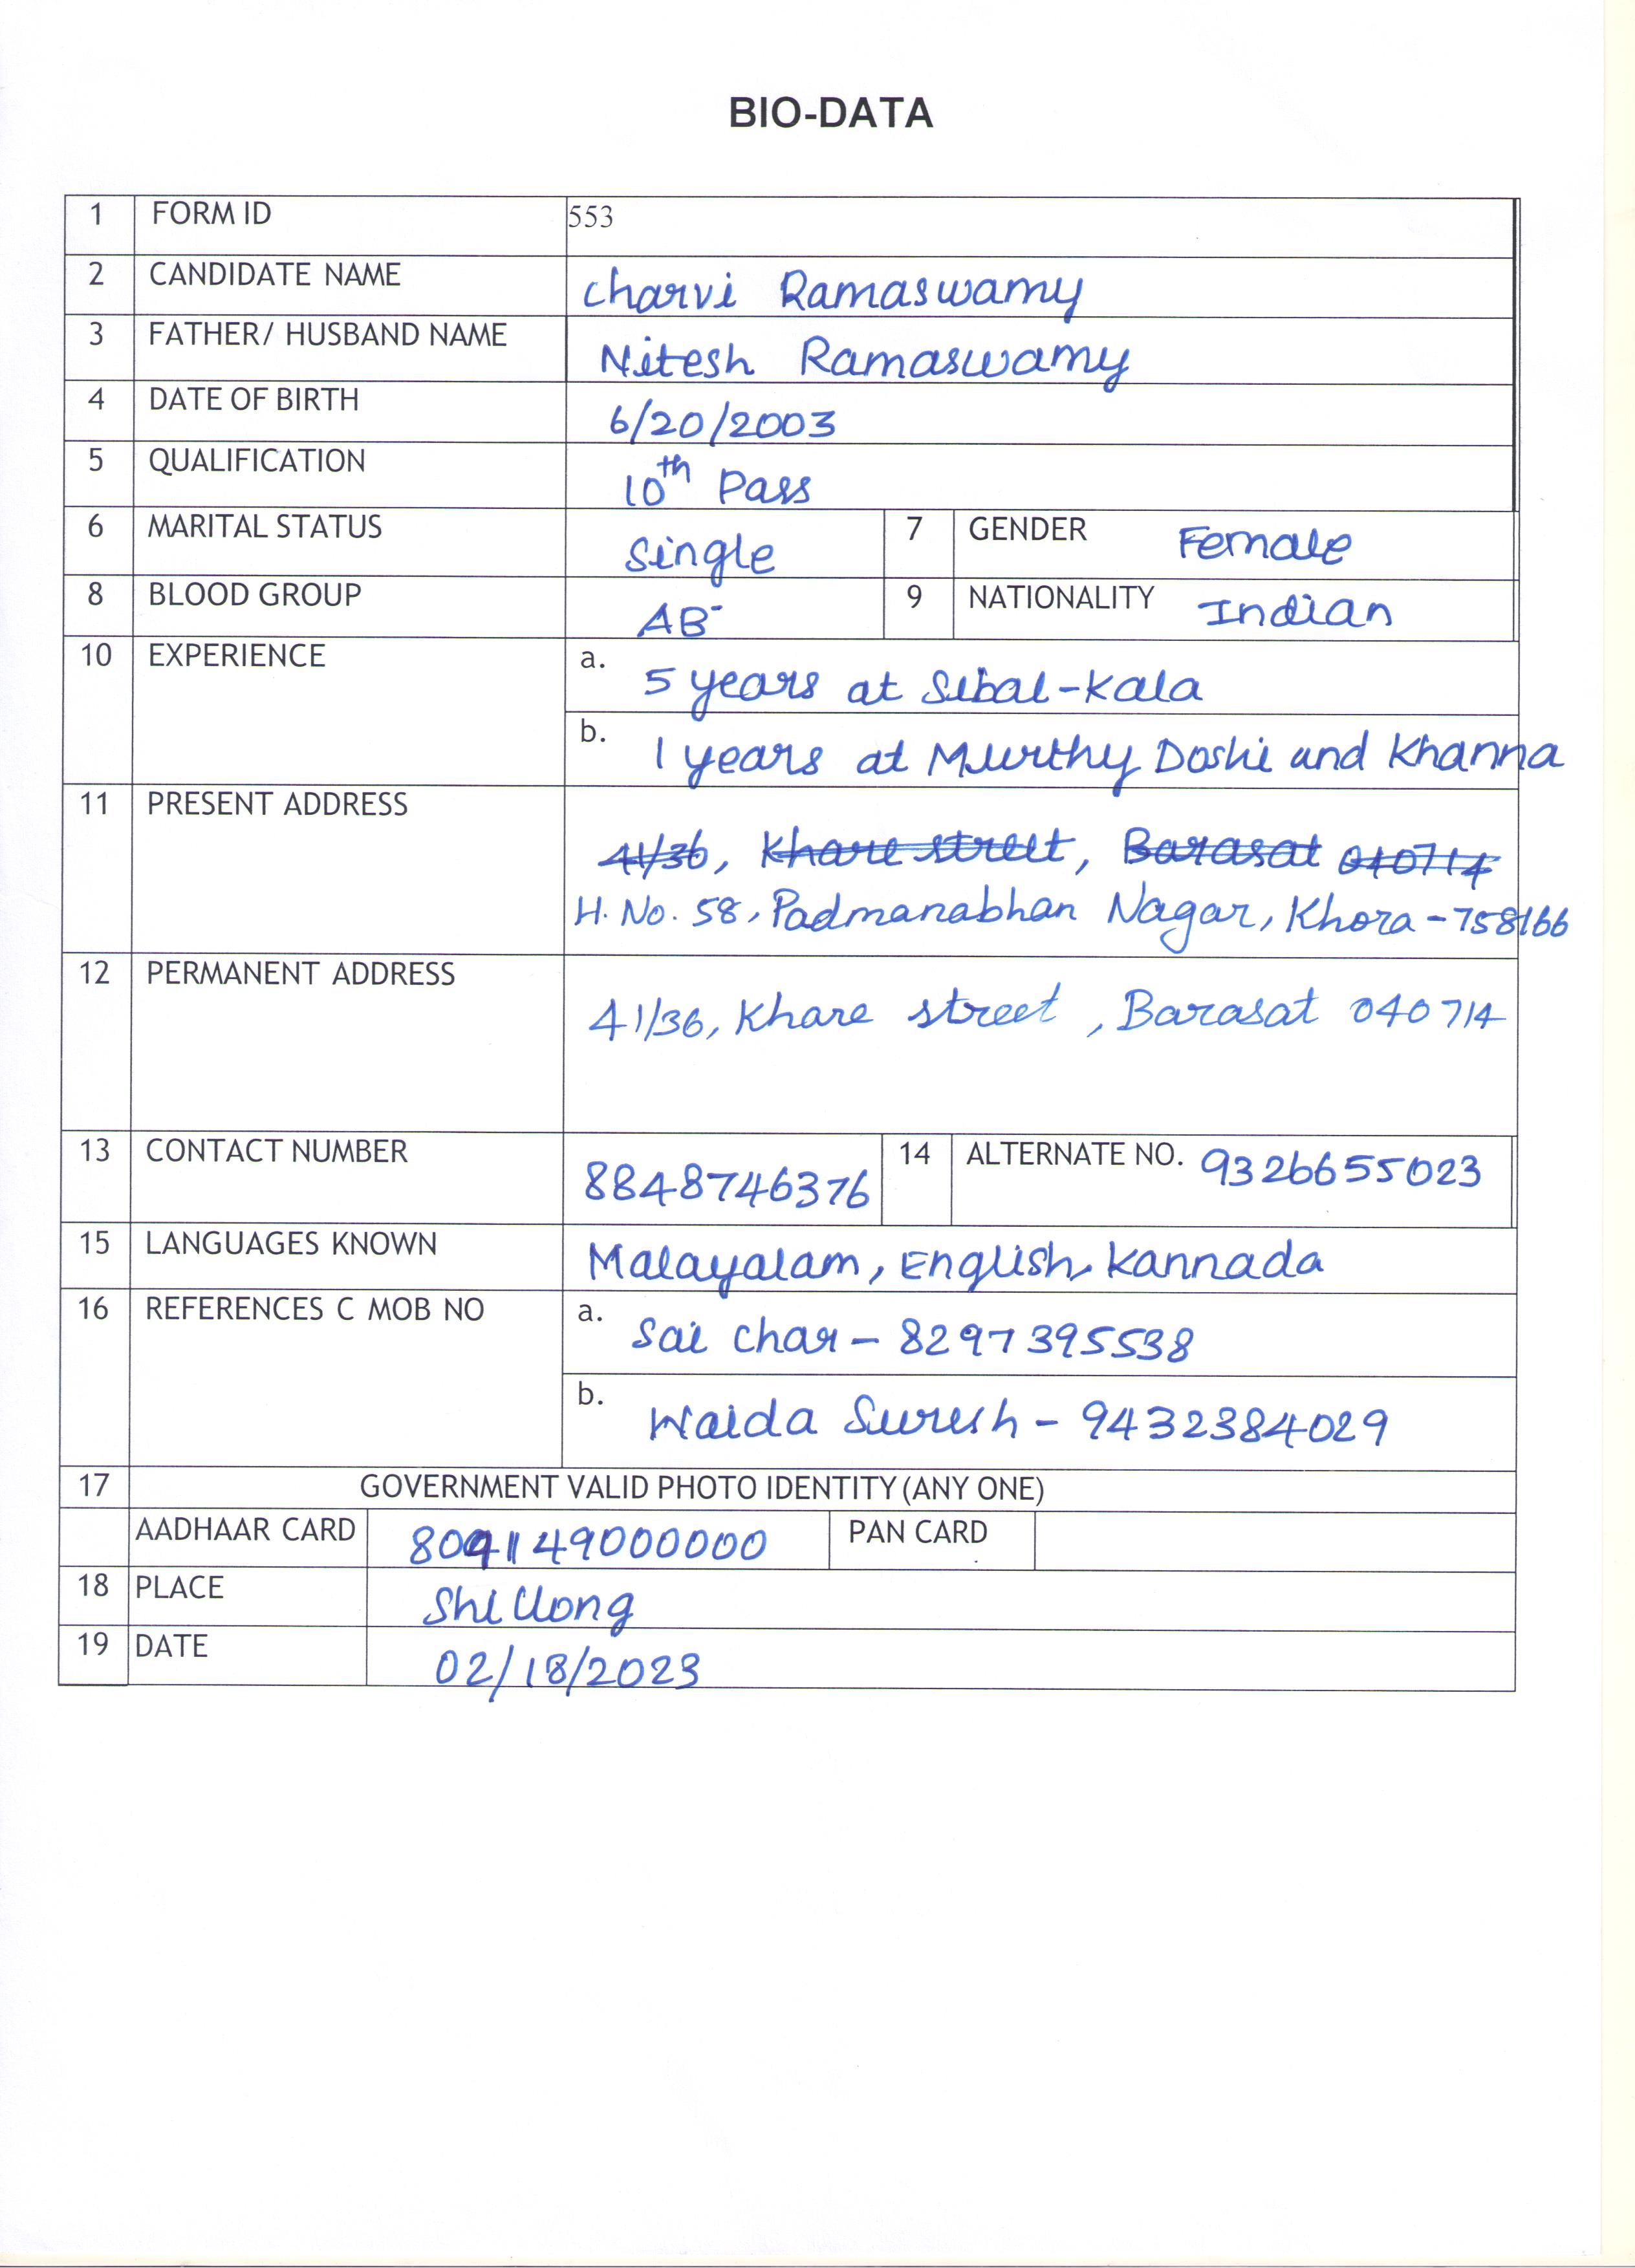 BIO-DATA
1 FORM ID 553
2 CANDIDATE NAME Charvi Ramaswamy
3 FATHER/ HUSBAND NAME Nitesh Ramaswamy
4 DATE OF BIRTH 6/20/2003
5 QUALIFICATION 10th Pass
6 MARITAL STATUS Single 7 GENDER Female
8 BLOOD GROUP AB- 9 NATIONALITY Indian
10 EXPERIENCE a. 5 years at Sibal-Kala
b. 1 years at Murthy Doshi and Khanna
11 PRESENT ADDRESS
41/36, Khare street, Barasat 040714
H. No. 58, Padmanabhan Nagar, Khora - 758166
12 PERMANENT ADDRESS
41/36, Khare street, Barasat 040714
13 CONTACT NUMBER 8848746376 14 ALTERNATE NO. 9326655023
15 LANGUAGES KNOWN Malayalam, English, Kannada
16 REFERENCES C MOB NO a. Sai Char - 8297395538
b. Waida Suresh - 9432384029
17 GOVERNMENT VALID PHOTO IDENTITY (ANY ONE)
AADHAAR CARD PAN CARD
18 PLACE Shillong
19 DATE 02/18/2023